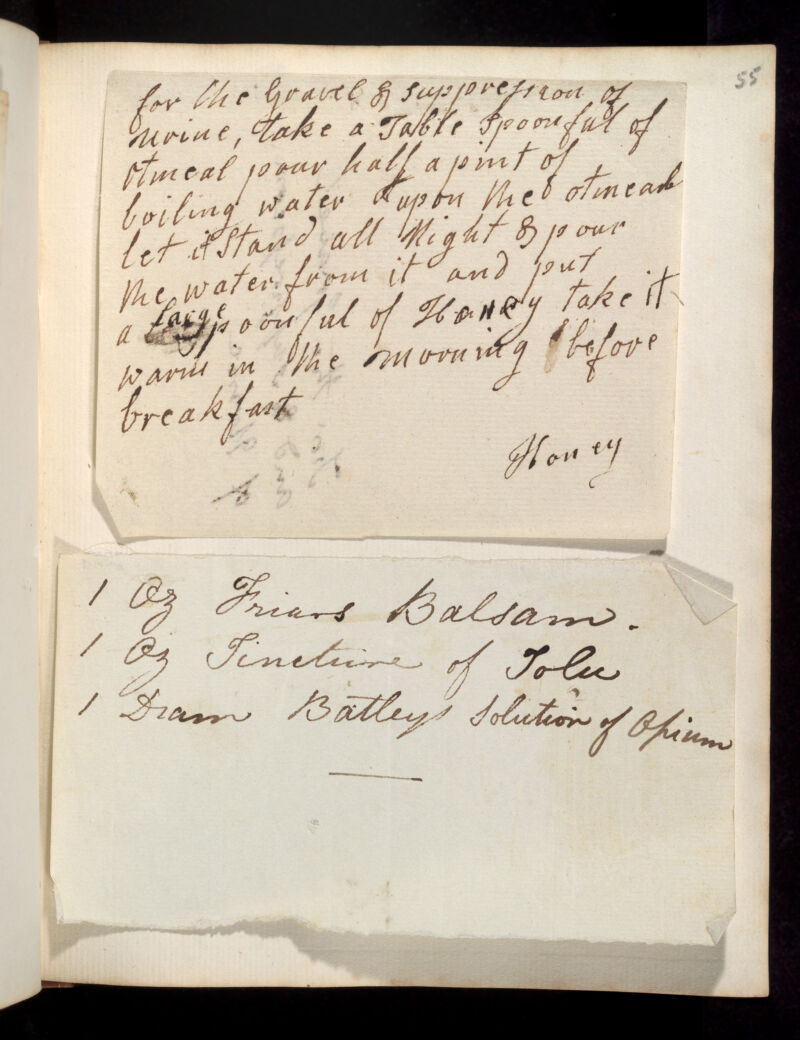 55
for the Gravel & suppression of
urine, take a Table Spoonful of
otmeal pour half a pint of
boiling water upon the otmeal
let it Stand all Night & pour
the water from it and put
a large spoonful of Honey take it
warm in the morning before
breakfast
Honey
1 Oz Friars Balsam.
1 Oz Tincture of Tolu
1 Dram Batleys Solution of Opium